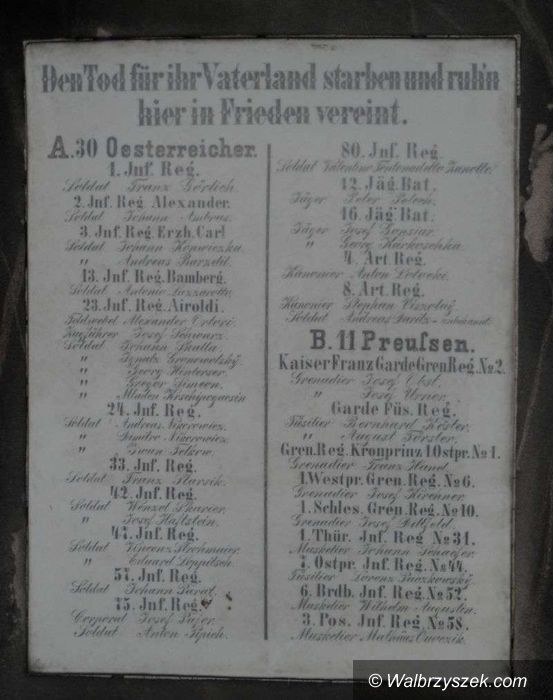 Den Tod für ihr Vaterland starben und ruh'n
hier in Frieden vereint.
A. 30 Oesterreicher.
1. Jnf. Reg.
Soldat Franz Görlich.
2. Jnf. Reg. Alexander.
Soldat Johann Ambras.
3. Jnf. Reg. Erzh. Carl
Soldat Johann
" Andreas
13. Jnf. Reg. Bamberg.
Soldat Antonio Lazzarotto.
23. Jnf. Reg. Airoldi.
Feldwebel Alexander
Zugführer Josef Schwarz.
Soldat Johann Skalla.
" Ignatz
" Georg Hinterser
" Gregor Simeon.
" Mladen
24. Jnf. Reg.
Soldat Andreas
" Dimitro
" Iwan
33. Jnf. Reg.
Soldat Franz
42. Jnf. Reg.
Soldat Wenzel
" Josef Haftstein.
47. Jnf. Reg.
Soldat Vincenz
" Eduard
57. Jnf. Reg.
Soldat Johann
75. Jnf. Reg.
Corporal Josef
Soldat Anton
80. Jnf. Reg.
Soldat Valentino Fontanadella Zanotto.
12. Jäg. Bat.
Jäger Peter
16. Jäg. Bat.
Jäger Josef Gonsior.
" Georg Karkoschka.
4. Art. Reg.
Kanonier Anton
8. Art. Reg.
Kanonier Stephan
Soldat Andreas unbekannt.
B. 11 Preuſsen.
Kaiser Franz Garde Gren Reg. No 2.
Grenadier Josef Obst.
" Josef Urner.
Garde Füs. Reg.
Füsilier Bernhard Kester.
" August Förster.
Gren. Reg. Kronprinz 1 Ostpr. No 1.
Grenadier Franz Hand.
1. Westpr. Gren. Reg. No 6.
Grenadier Josef Kirchner.
1. Schles. Gren. Reg. No 10.
Grenadier Josef
1. Thür. Jnf. Reg No 31.
Musketier Johann Schaefer.
7. Ostpr. Jnf. Reg. No 44.
Füsilier Lorenz
6. Brdb. Jnf. Reg. No 52.
Musketier Wilhelm Augustin.
3. Pos. Jnf. Reg. No 58.
Musketier Mathäus
© Walbrzyszek.com